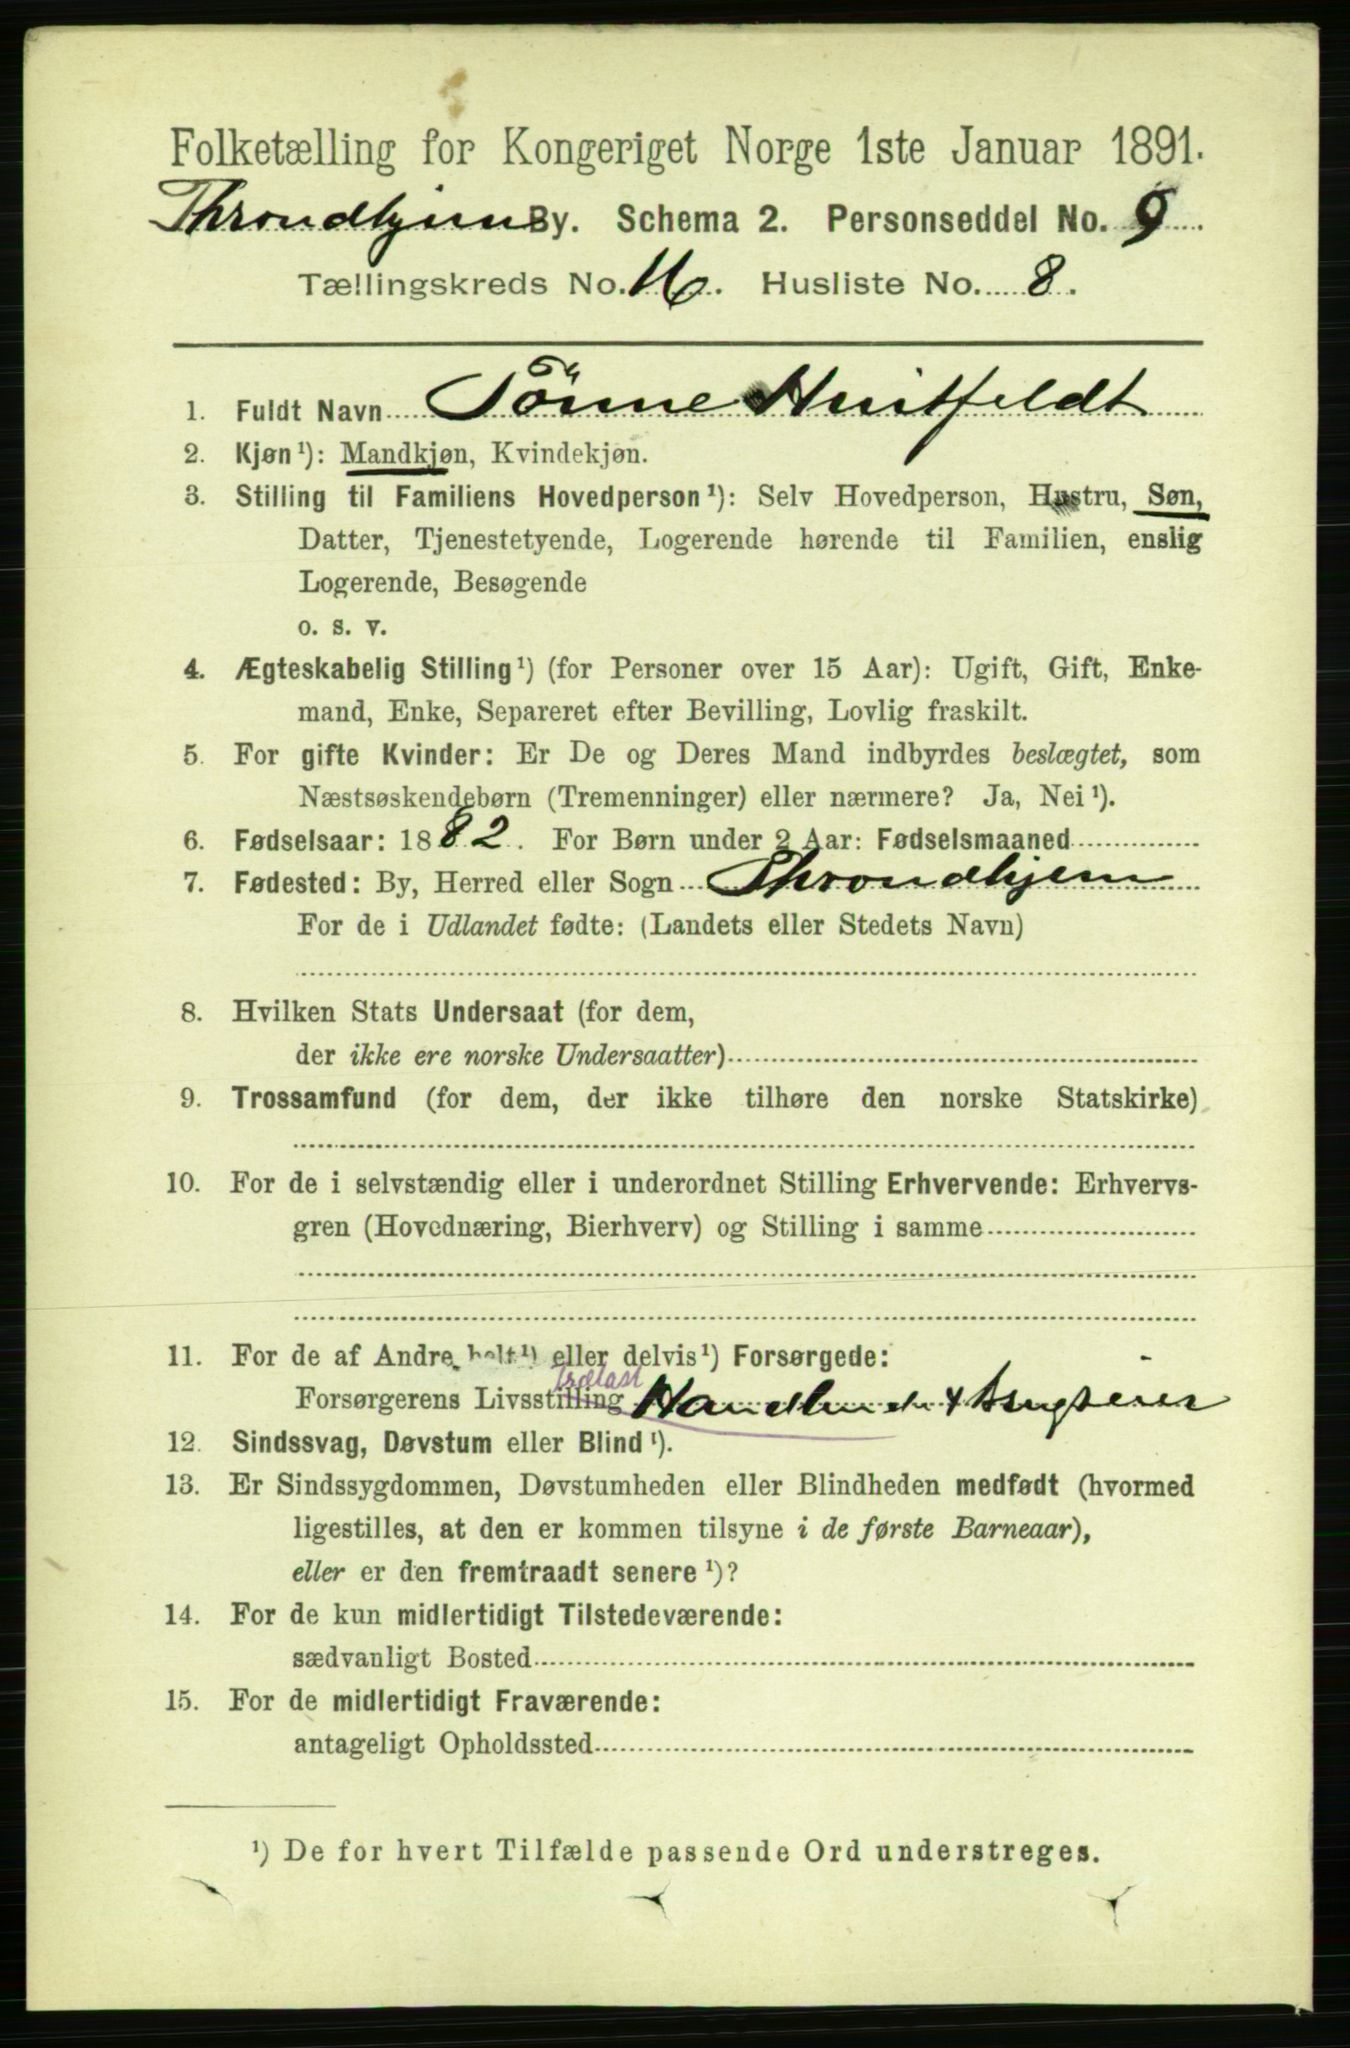 Folketælling for Kongeriget Norge 1ste Januar 1891.
Throndhjem By. Schema 2. Personseddel No. 9
Tællingskreds No. 16. Husliste No. 8.
1. Fuldt Navn Tönne Huitfeldt
2. Kjøn¹): Mandkjøn, Kvindekjøn.
3. Stilling til Familiens Hovedperson¹): Selv Hovedperson, Hustru, Søn,
Datter, Tjenestetyende, Logerende hørende til Familien, enslig
Logerende, Besøgende
o. s. v.
4. Ægteskabelig Stilling¹) (for Personer over 15 Aar): Ugift, Gift, Enke-
mand, Enke, Separeret efter Bevilling, Lovlig fraskilt.
5. For gifte Kvinder: Er De og Deres Mand indbyrdes beslægtet, som
Næstsøskendebørn (Tremenninger) eller nærmere? Ja, Nei¹).
6. Fødselsaar: 1882. For Børn under 2 Aar: Fødselsmaaned
7. Fødested: By, Herred eller Sogn Throndhjem
For de i Udlandet fødte: (Landets eller Stedets Navn)
8. Hvilken Stats Undersaat (for dem,
der ikke ere norske Undersaatter)
9. Trossamfund (for dem, der ikke tilhøre den norske Statskirke)
10. For de i selvstændig eller i underordnet Stilling Erhvervende: Erhvervs-
gren (Hovednæring, Bierhverv) og Stilling i samme
11. For de af Andre helt¹) eller delvis¹) Forsørgede:
Trælast
Forsørgerens Livsstilling Handlende &
12. Sindssvag, Døvstum eller Blind¹).
13. Er Sindssygdommen, Døvstumheden eller Blindheden medfødt (hvormed
ligestilles, at den er kommen tilsyne i de første Barneaar),
eller er den fremtraadt senere¹)?
14. For de kun midlertidigt Tilstedeværende:
sædvanligt Bosted
15. For de midlertidigt Fraværende:
antageligt Opholdssted
¹) De for hvert Tilfælde passende Ord understreges.